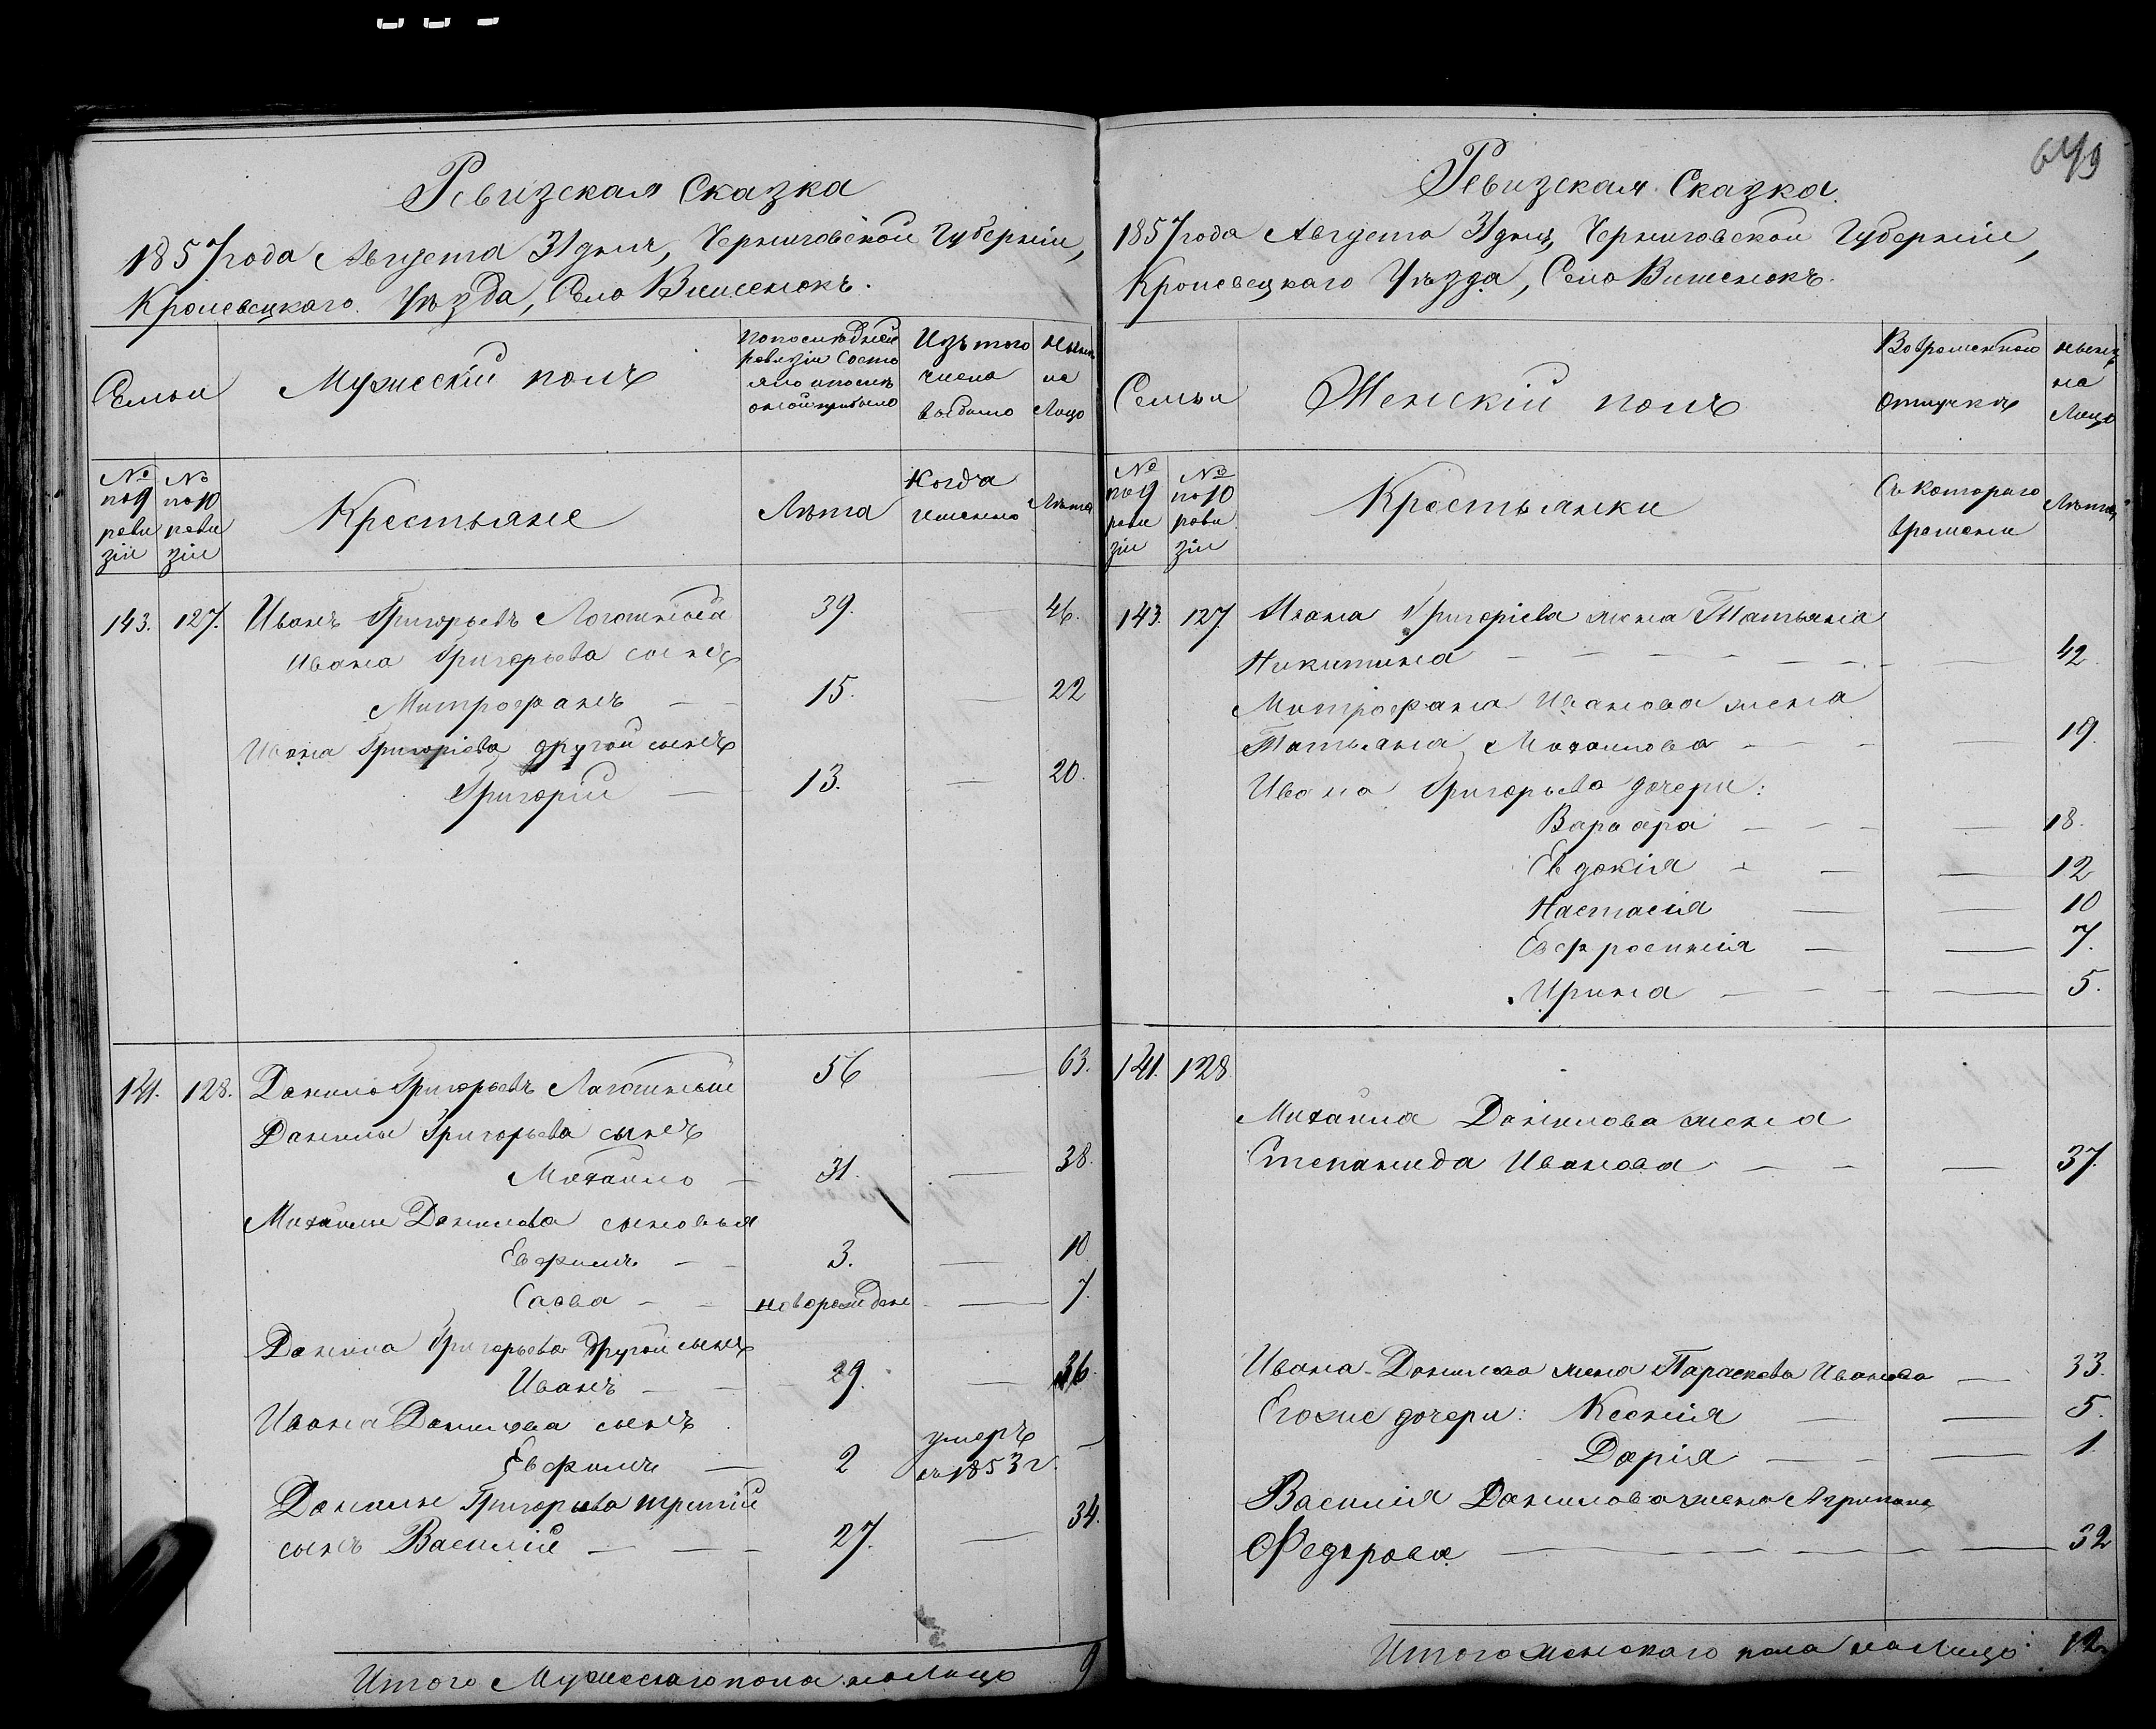 Ревизская Сказка
1857 года Августа 31 дня, Черниговской Губернии,
Кролевецкаго Уѣзда, Село Вишенокъ.
Семьи
Мужескій полъ
По последней
ревизіи состо
яло и после
оной прибыло
Изъ того
числа
выбыло
Ныне
на
Лицо
№
по 9
реви
зіи
№
по 10
реви
зіи
Крестьяне
Лѣта
Когда
именно
Лѣта
143. 127. Иванъ Григорьевъ 39. — 46.
Ивана Григорьева сынъ
Митрофанъ — — 15. — 22
Ивана Григоріева другой сынъ
Григорій — 13. — 20.
141. 128. Данило Григорьевъ 56 — 63.
Данилы Григорьева сынъ
Михайло — 31. — 38.
Михайлы Данилова сыновья
Евфимъ — — 3. — 10
Савва — — новорожден — 7.
Данила Григорьева другой сынъ
Иванъ — — 29. — 36.
Ивана Данилова сынъ
Евфимъ — 2 умеръ
въ 1853 г. —
Данилы Григорьева третій
сынъ Василій — — — 27. — 34.
Итого Мужескаго пола на лицо 9
Ревизская Сказка.
1857 года Августа 31 дня, Черниговской Губерніи,
Кролевецкаго Уѣзда, Село Вишенокъ.
Семьи
Женскій полъ
Во временной
отлучкѣ
Ныне
на
Лицо
№
по 9
реви
зіи
№
по 10
реви
зіи
Крестьянки
Съ котораго
времени
Лѣта
143. 127. Ивана Григоріева жена Татьяна
Никитина — — — — — — — 42
Митрофана Иванова жена
Татьяна Михаилова — — — — 19.
Ивана Григорьева дочери:
Варвара — — — — 18.
Евдокія — — — 12
Настасія — — 10
Евфросинія — — 7.
Ирина — — — — 5.
141. 128
Михаила Данилова жена
Степанида Иванова — — — 37.
Ивана Данилова жена Параскева Иванова — 33.
Его же дочери: Ксенія — — 5.
Дарія — — — 1
Василія Данилова жена Агрипина
Федорова — — — — — — — 32
Итого женскаго пола на лицо 12